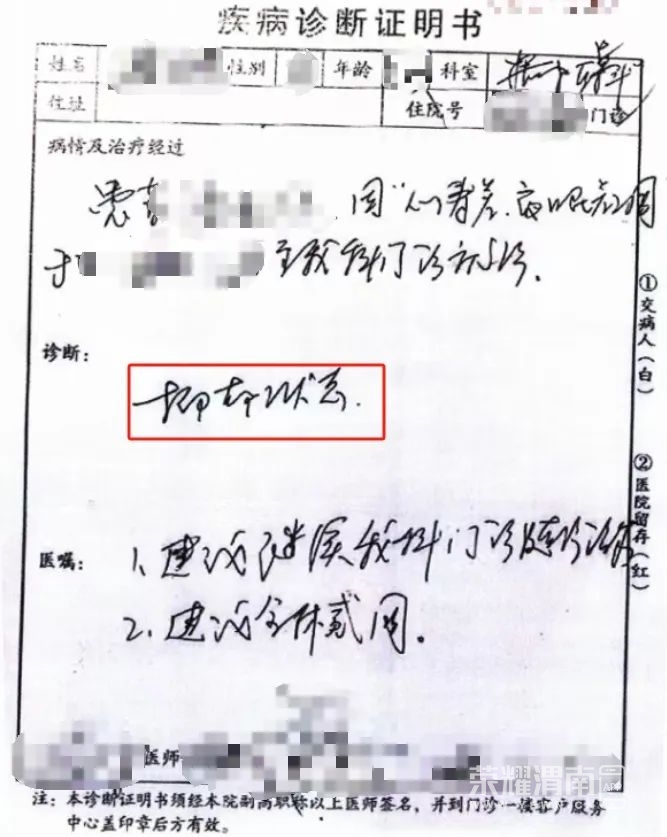 疾病诊断证明书
姓名 性别 年龄 科室
住址 住院号 门诊
病情及治疗经过
患者 因"心情差、夜眠差2周
于 至我科门诊就诊.
诊断:
抑郁状态.
医嘱: 1. 建议继续我科门诊随诊治疗
2. 建议全休贰周.
医师
注: 本诊断证明书须经本院副高职称以上医师签名, 并到门诊一楼客户服务
中心盖印章后方有效。
①交病人(白)
②医院留存(红)
荣耀渭南